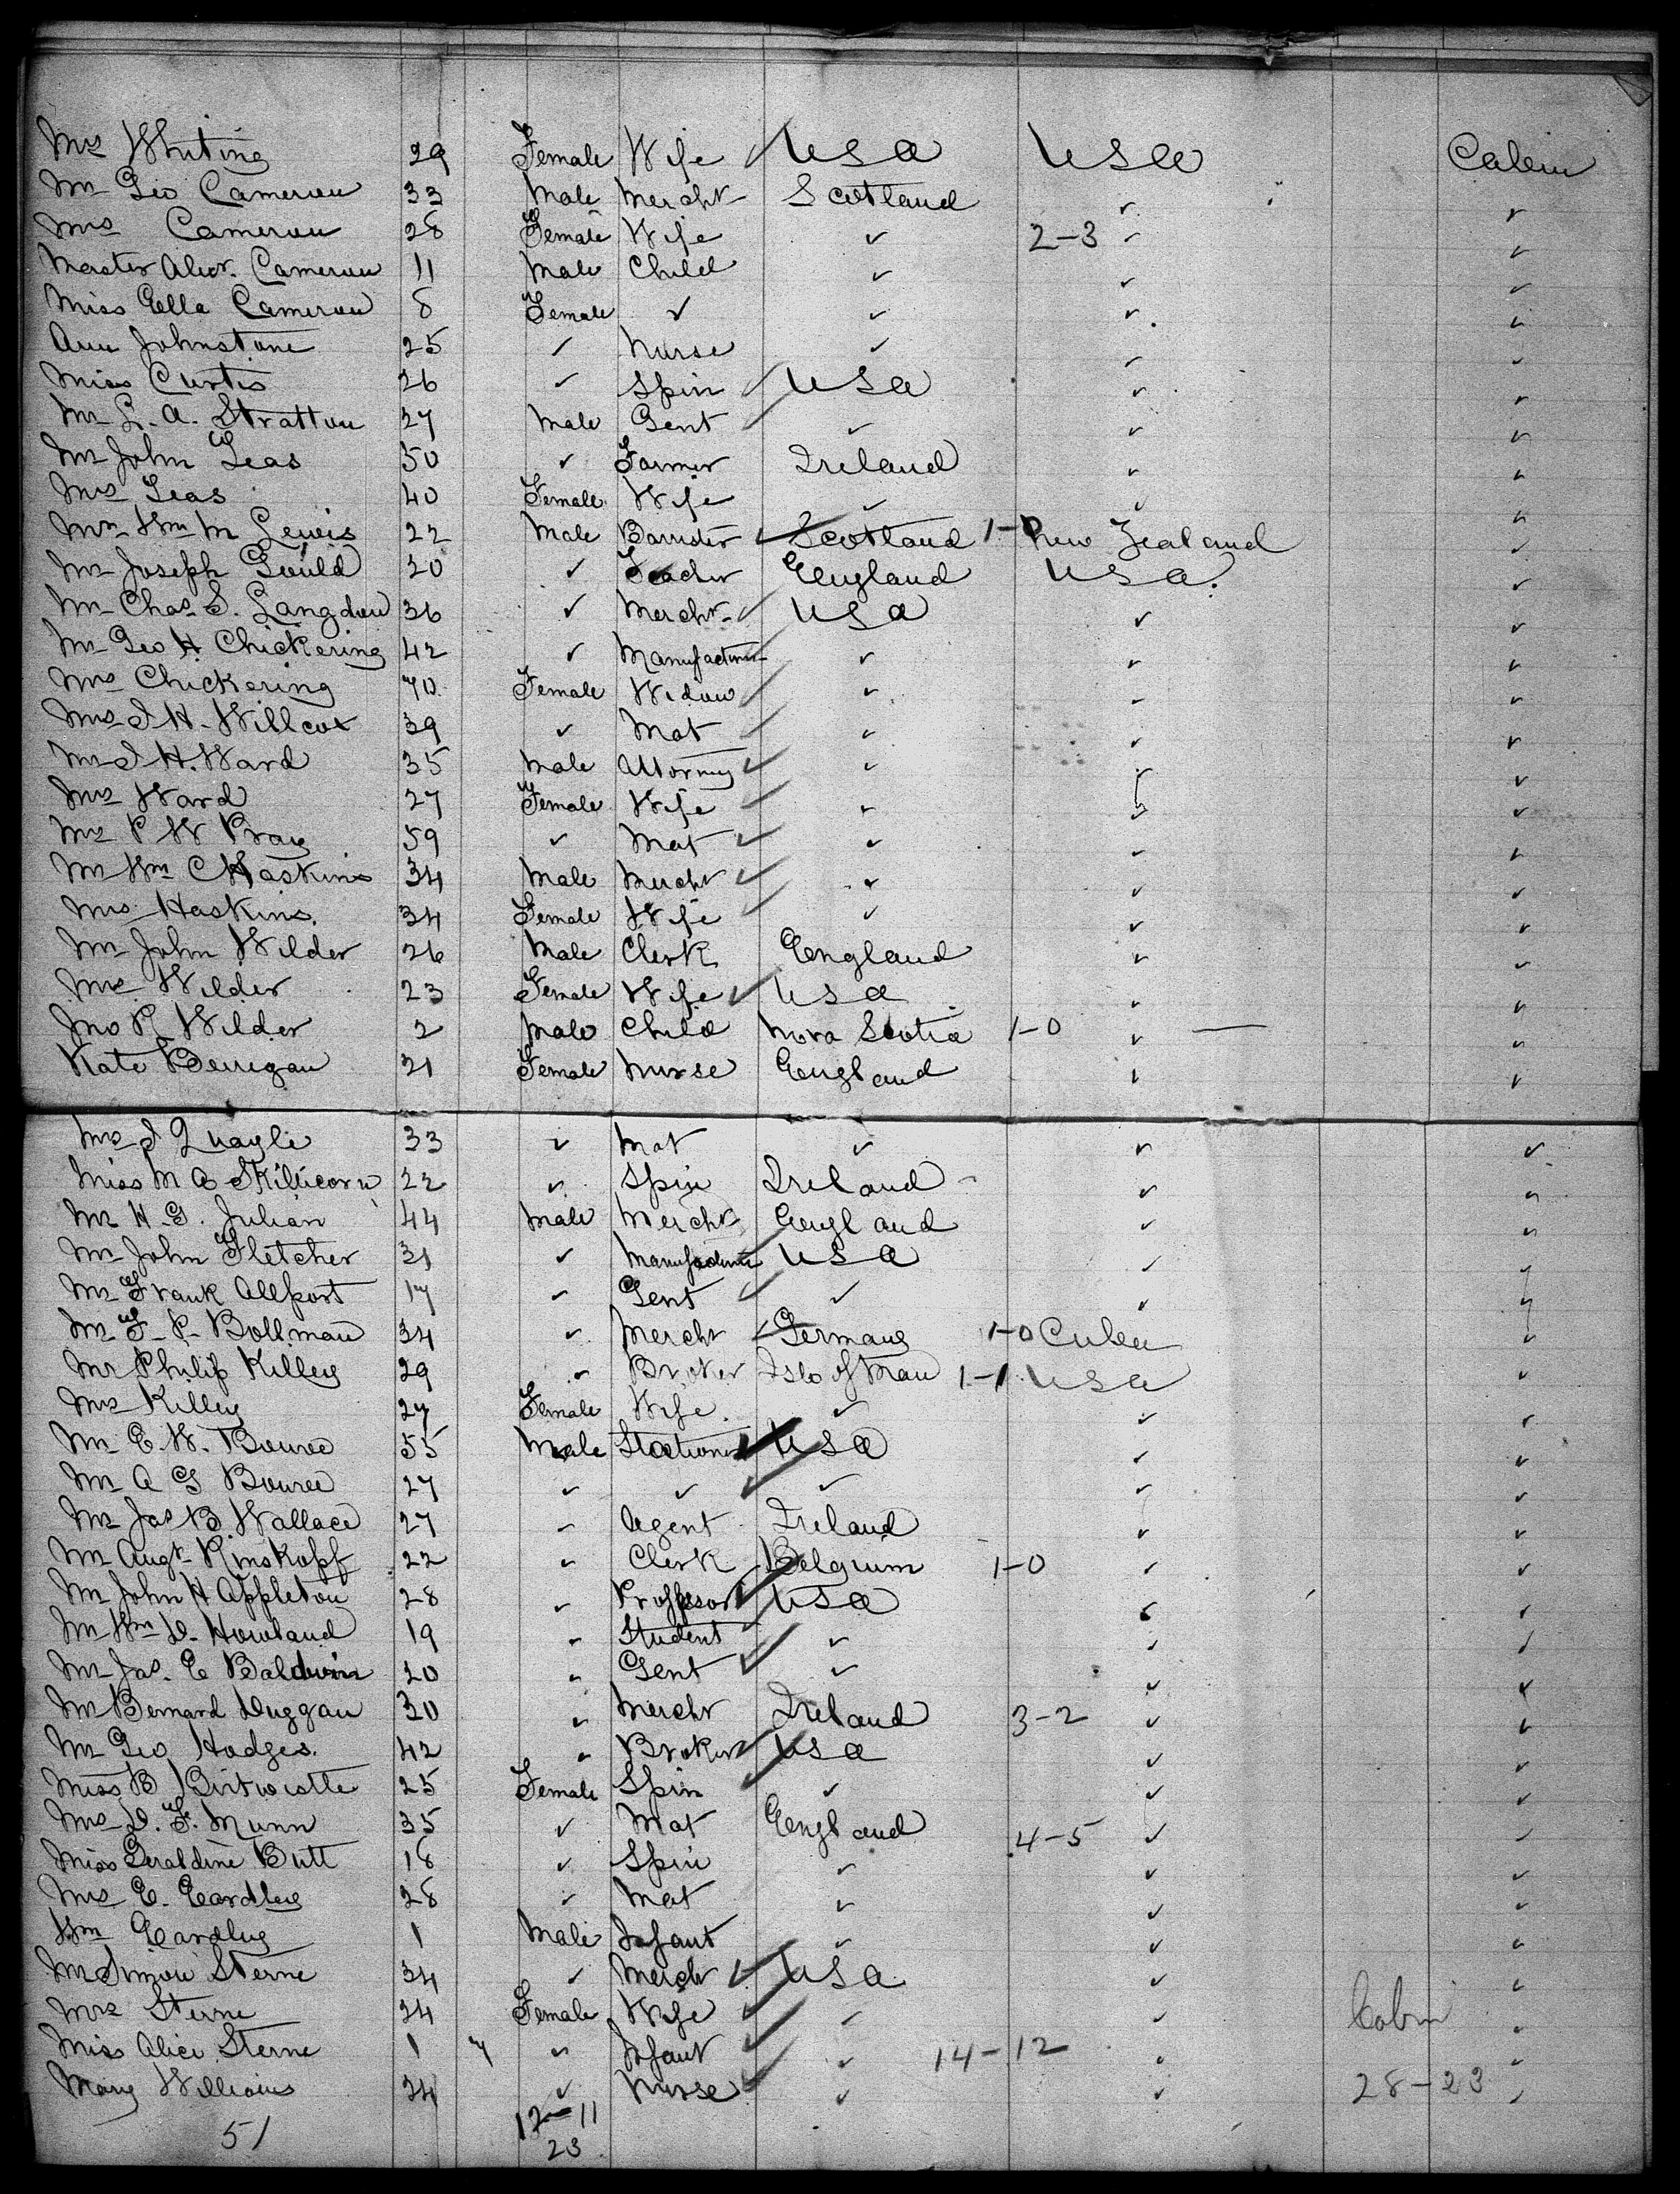 Mrs Whiting 29 Female Wife ✓ USA USA Cabin
Mr Geo Cameron 33 Male Mercht Scotland ✓ ✓
Mrs Cameron 28 Female Wife ✓ 2-3 ✓ ✓
Master Alexr. Cameron 11 Male Child ✓ ✓ ✓
Miss Ella Cameron 8 Female ✓ ✓ ✓ ✓
Ann Johnstone 25 ✓ Nurse ✓ ✓ ✓
Miss Curtis 26 ✓ Spin ✓ USA ✓ ✓
Mr L. A. Stratton 27 Male Gent ✓ ✓ ✓
Mr John Leas 50 ✓ Farmer Ireland ✓ ✓
Mrs Leas 40 Female Wife ✓ ✓ ✓
Mr Wm M Lewis 22 Male Barrister ✓ Scotland 1-0 New Zealand ✓
Mr Joseph Gould 30 ✓ Teacher England USA. ✓
Mr Chas S. Langdon 36 ✓ Mercht ✓ USA ✓ ✓
Mr Geo H Chickering 42 ✓ Manufacturer ✓ ✓ ✓
Mrs Chickering 70 Female Widow ✓ ✓ ✓
Mrs J H. Willcox 39 ✓ Mat ✓ ✓ ✓
Mr J H. Ward 35 Male Attorney ✓ ✓ ✓ ✓
Mrs Ward 27 Female Wife ✓ ✓ ✓ ✓
Mrs P W Pray 59 ✓ Mat ✓ ✓ ✓ ✓
Mr Wm C Haskins 34 Male Mercht ✓ ✓ ✓ ✓
Mrs Haskins. 34 Female Wife ✓ ✓ ✓ ✓
Mr John Wilder 26 Male Clerk England ✓ ✓
Mrs Wilder 23 Female Wife ✓ USA ✓ ✓
Jno R Wilder 2 Male Child Nova Scotia 1-0 ✓ — ✓
Kate Berrigan 21 Female Nurse England ✓ ✓
Mrs J Quayle 33 ✓ Mat ✓ ✓ ✓
Miss M A Skillicorn 22 ✓ Spin Ireland ✓ ✓
Mr H. G. Julian 44 Male Mercht England ✓ ✓
Mr John Fletcher 31 ✓ Manufacturer USA ✓ ✓
Mr Frank Allport 17 ✓ Gent ✓ ✓ ✓ ✓
Mr F. P. Bollman 34 ✓ Mercht ✓ Germany 1-0 Cuba ✓
Mr Philip Killey 29 ✓ Broker Isle of Man 1-1 USA ✓
Mrs Killey 27 Female Wife. ✓ ✓ ✓
Mr E. W. Bouve 55 Male Stationer ✓ USA ✓ ✓
Mr A G Bouve 27 ✓ ✓ ✓ ✓ ✓ ✓
Mr Jas B. Wallace 27 ✓ Agent Ireland ✓ ✓
Mr Augt Rinskopf 22 ✓ Clerk Belgium 1-0 ✓ ✓
Mr John H Appleton 28 ✓ Professor ✓ USA ✓ ✓
Mr Wm D. Howland 19 ✓ Student ✓ ✓ ✓
Mr Jas. E Baldwin 20 ✓ Gent ✓ ✓ ✓ ✓
Mr Bernard Duggan 30 ✓ Mercht Ireland 3-2 ✓ ✓
Mr Geo Hodges. 42 ✓ Broker ✓ USA ✓ ✓
Miss B Birtwistle 25 Female Spin ✓ ✓ ✓
Mrs D. F. Munn 35 ✓ Mat England 4-5 ✓ ✓
Miss Geraldine Butt 18 ✓ Spin ✓ ✓ ✓
Mrs E. Eardley 28 ✓ Mat ✓ ✓ ✓
Wm Eardley 1 Male Infant ✓ ✓ ✓
Mr Simon Sterne 34 ✓ Mercht ✓ USA ✓ ✓
Mrs Sterne 24 Female Wife ✓ ✓ ✓ Cabin ✓
Miss Alice Sterne 1 7 ✓ Infant ✓ ✓ 14-12 ✓ ✓
Mary Williams 24 ✓ Nurse ✓ ✓ ✓ 28-23 ✓
51 12-11
23